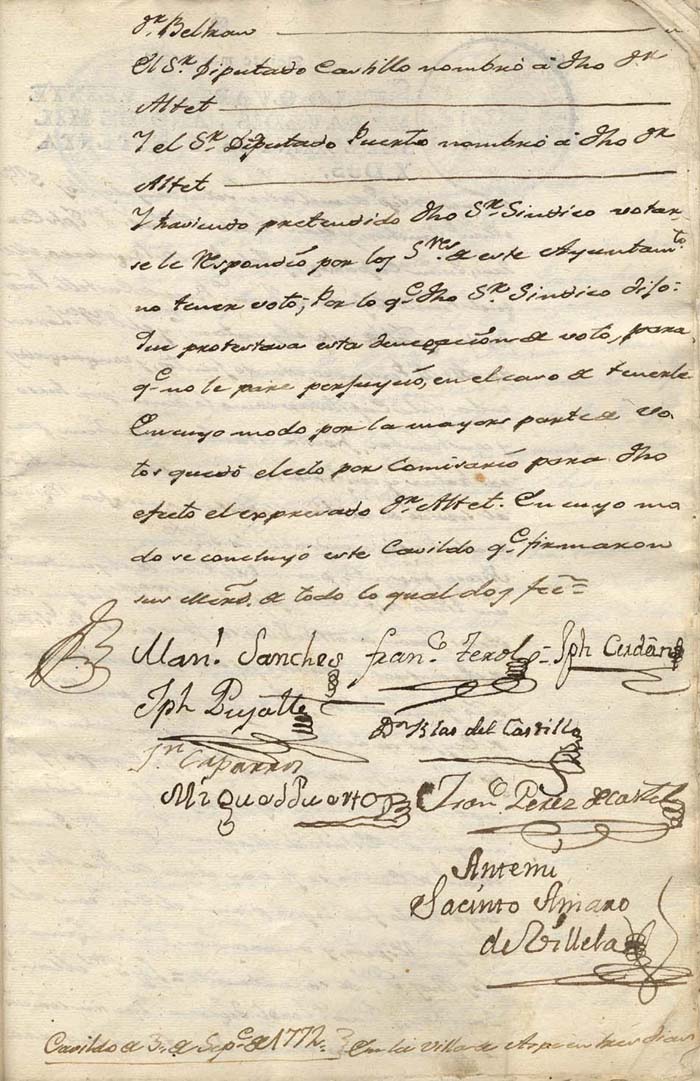 dr. Beltran
El Sr. Diputado Castillo nombró á dho dr.
Altet
Y el Sr. Diputado Puerto nombró á dho dr
Altet
Y haviendo pretendido dho Sr. Sindico votar
se le respondió por los Sres. de este Ayuntamto.
no tener voto; Por lo qe. dho Sr. Sindico dijo:
Que protestava esta denegación de voto, para
qe. no le pare perjuycio, en el caso de tenerle
En cuyo modo por la mayor parte de vo
tos quedó electo por Comisario para dho
efecto el expresado dr. Altet. En cuyo mo
do se concluyó este Cavildo qe. firmaron
sus Mercds. de todo lo qual doy fee=
Manl. Sanches franco. Terol Jph Cerdan
Jph Pujalte Dn. Blas del Castillo
Jn. Caparros
Miguel Puerto Franco. Perez de
Antemi
Jacinto Amaro
de Villela
Cavildo de 3 de Sepe. de 1772. En la Villa de Aspe en tres dias